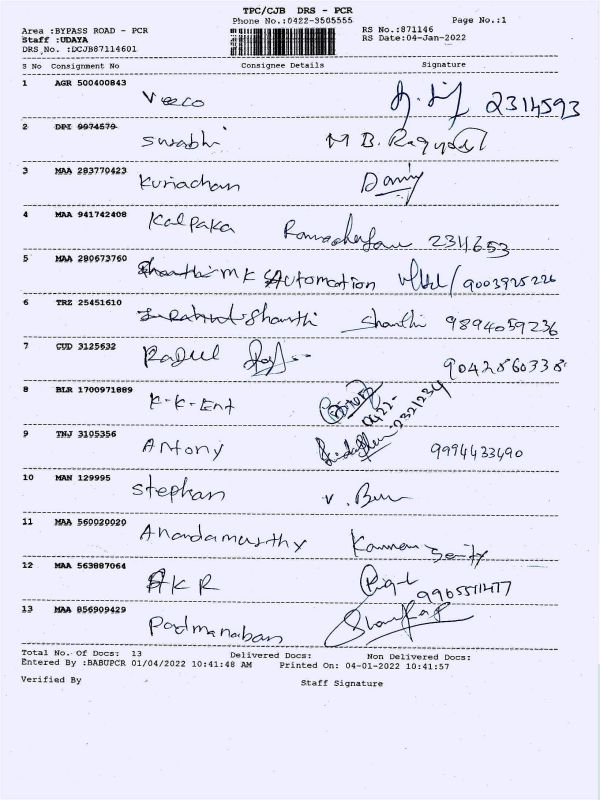 TPC/CJB DRS - PCR
Phone No.:0422-3505555 Page No.:1
Area :BYPASS ROAD - PCR RS No.:871146
Staff :UDAYA RS Date:04-Jan-2022
DRS No. :DCJB87114601
S No Consignment No Consignee Details Signature
1 AGR 500400843 Veeco 2314593
2 DPI 9974579 Swabhi M B.
3 MAA 283770423 Kuriachan Danny
4 MAA 941742408 Kalpaka 2311653
5 MAA 280673760 MK Automation 9003925226
6 TRZ 25451610 Shanthi Shanthi 9894059236
7 CUD 3125632 Raquel 9042860338
8 BLR 1700971889 K-K-Ent 0422-2321234
9 TNJ 3105356 Antony 9994433490
10 MAN 129995 Stephan V.
11 MAA 560020020 Anandamurthy
12 MAA 563887064 AKR 9965511477
13 MAA 856909429 Padmanaban
Total No. Of Docs: 13 Delivered Docs: Non Delivered Docs:
Entered By :BABUPCR 01/04/2022 10:41:48 AM Printed On: 04-01-2022 10:41:57
Verified By Staff Signature